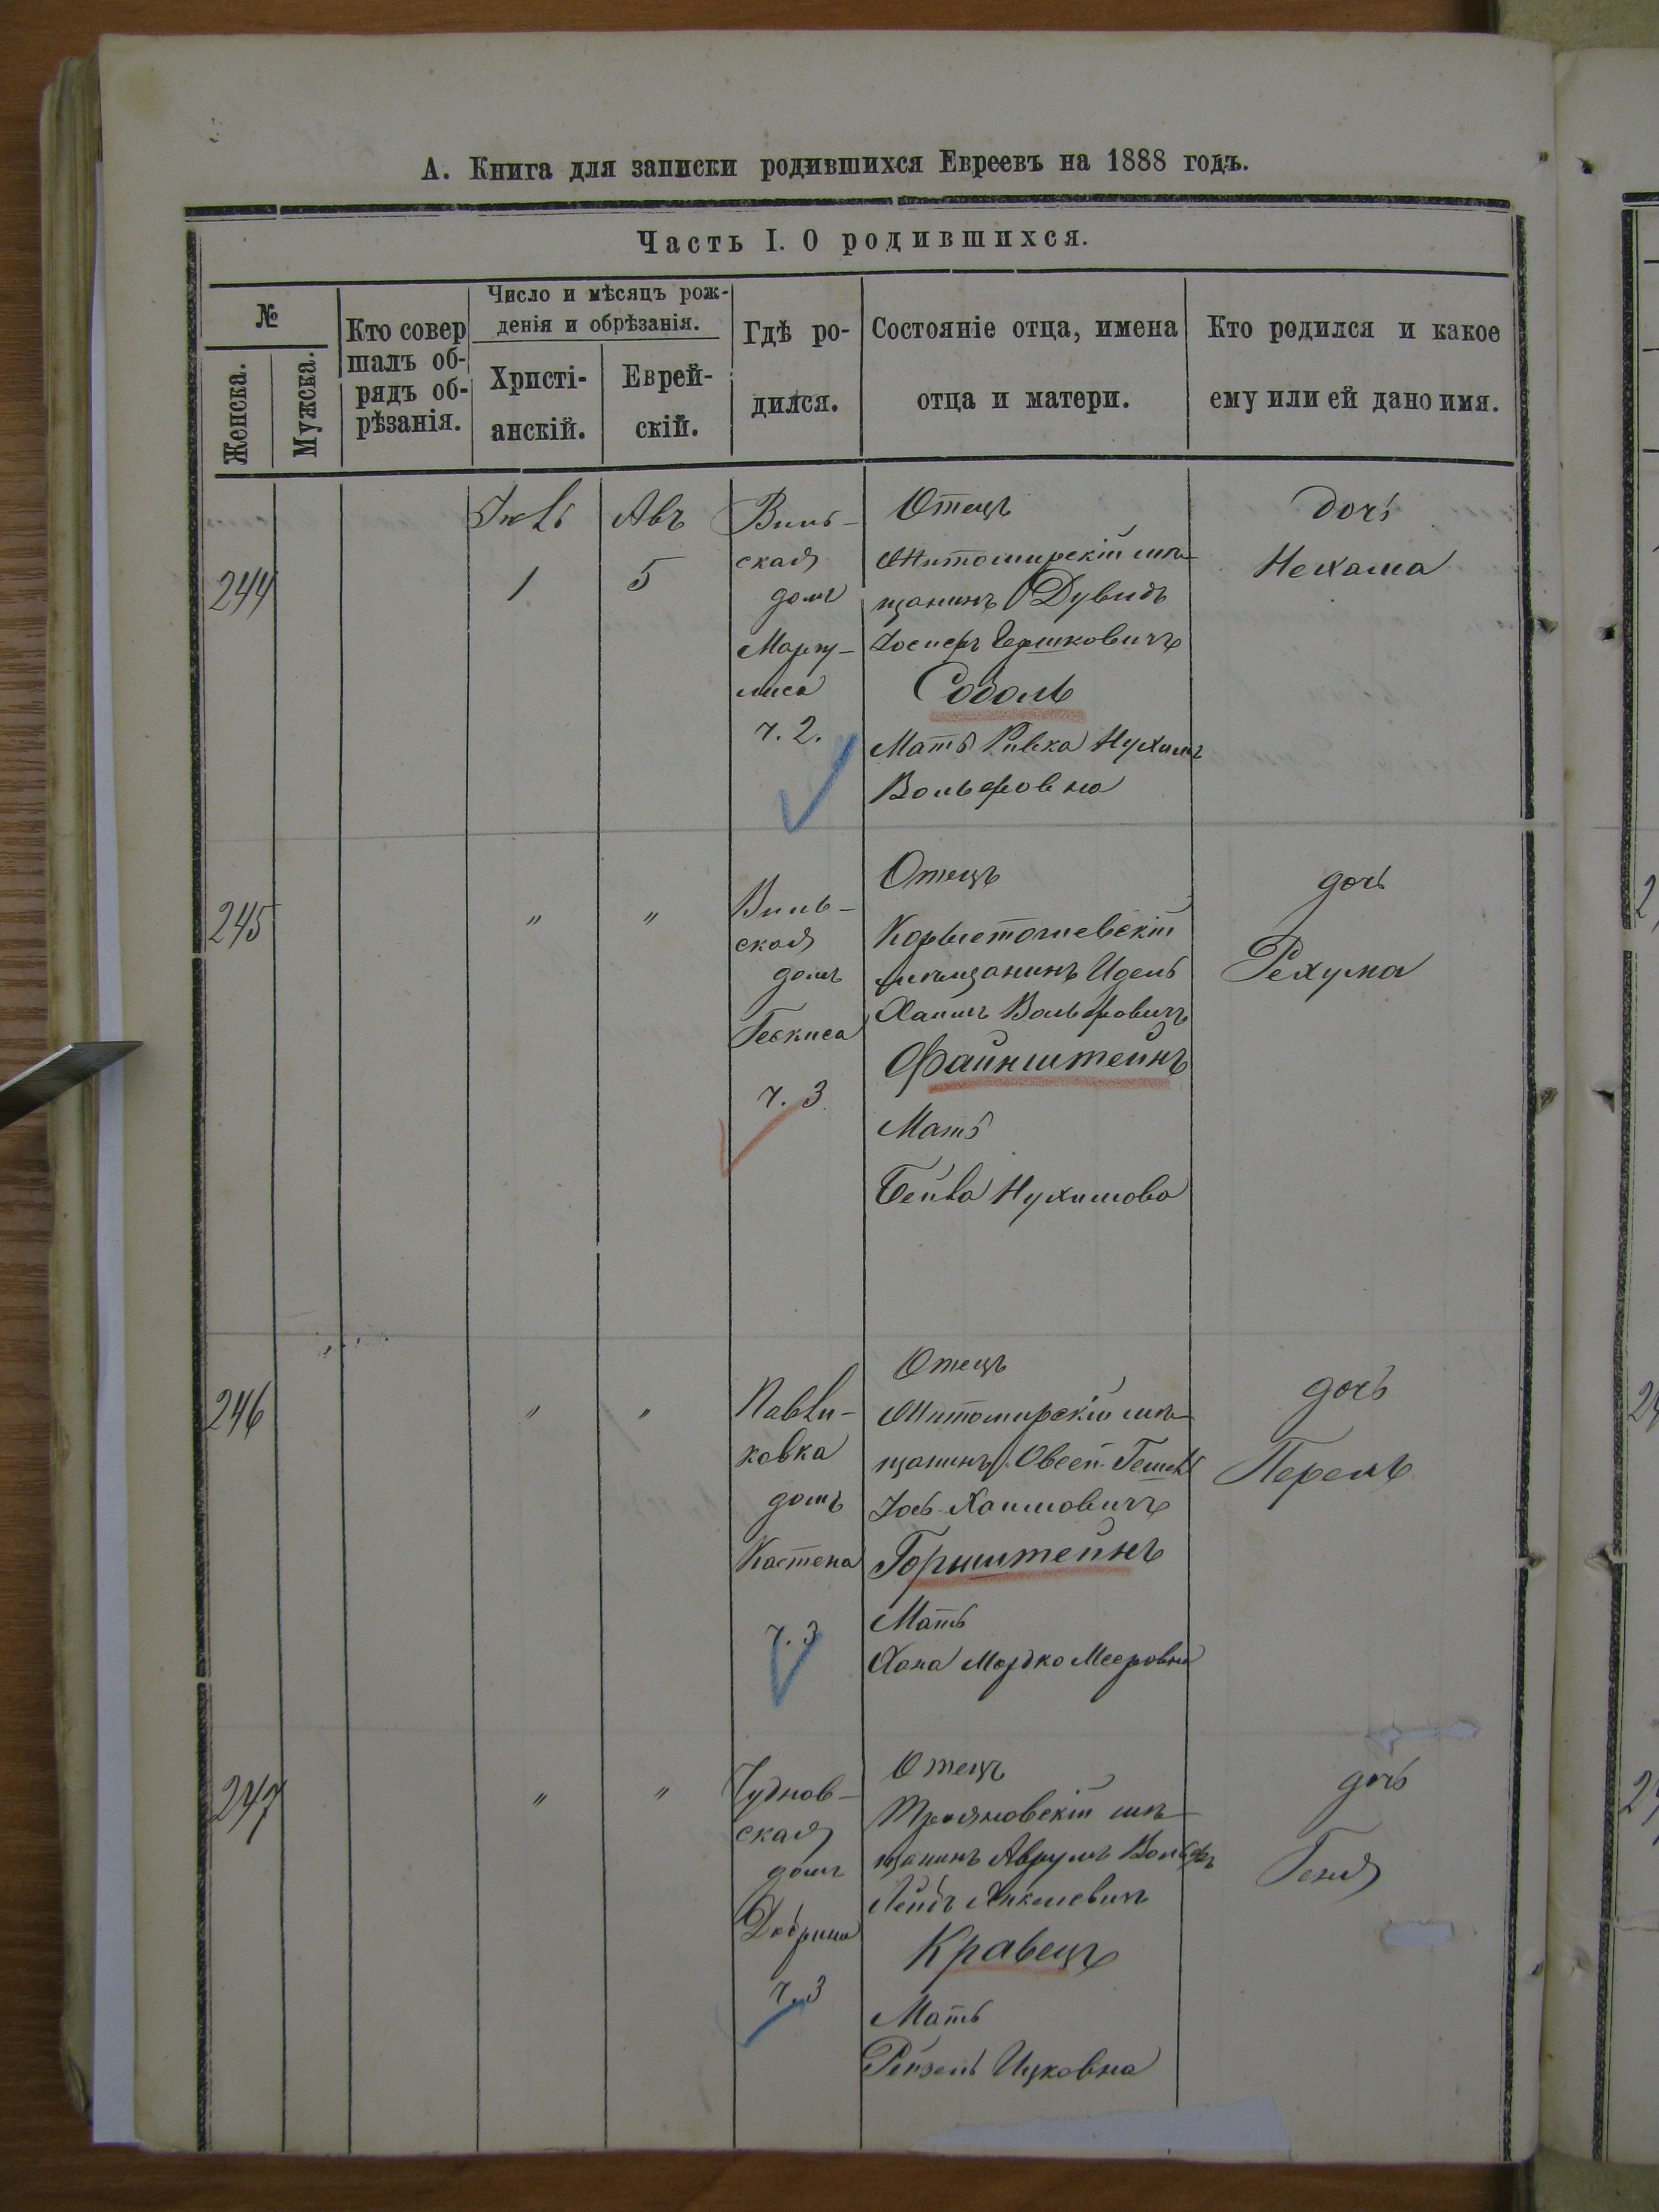 А. Книга для записки родившихся Евреевъ на 1888 годъ.
Часть I. О родившихся.
№
Женска.
Мужска.
Кто совер
шалъ об-
рядъ об-
рѣзанія.
Число и мѣсяцъ рож-
денія и обрѣзанія.
Христі-
анскій.
Еврей-
скій.
Гдѣ ро-
дился.
Состояніе отца, имена
отца и матери.
Кто родился и какое
ему или ей дано имя.
244
Іюль
1
Авъ
5
Виль-
ская
домъ
Маргу-
лиса
ч. 2.
Отецъ
Житомирскій мѣ-
щанинъ Дувидъ
Іосифъ Гершковичъ
Соболь
Мать Ривка Нухимъ
Вольфовна
дочь
Нехама
245
"
"
Виль-
ская
домъ
ч. 3
Отецъ
Коростышевскій
мѣщанинъ Идель
Хаимъ Вольфовичъ
Файнштейнъ
Мать
Бейла Нухимова
дочь
Рехума
246
"
"
Павли-
ковка
домъ
Кастена
ч. 3
Отецъ
Житомирскій мѣ-
щанинъ Овсей-Гешель
Іось-Хаимовичъ
Горнштейнъ
Мать
Хана Мордко Мееровна
дочь
Перель
247
"
"
Чуднов-
ская
домъ
ч. 3
Отецъ
Трояновскій мѣ-
щанинъ Аврумъ Вольфъ
Лейбъ Янкелевичъ
Кравецъ
Мать
Рейзель Ицковна
дочь
Геня